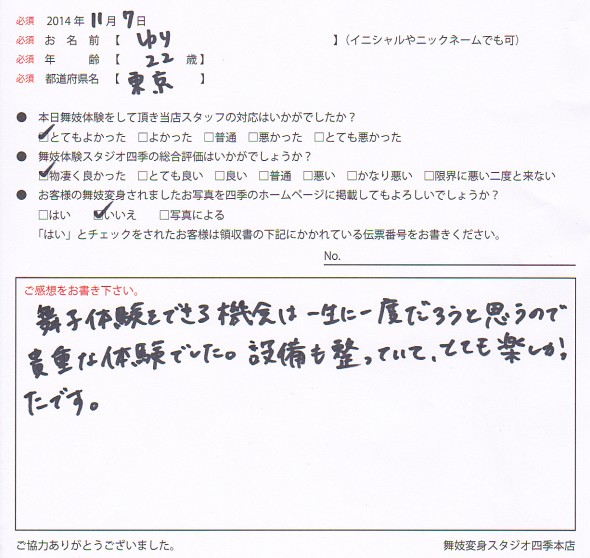 必須 2014年 11月 7日
必須 お名前【 ゆり 】（イニシャルやニックネームでも可）
必須 年齢【 22 歳】
必須 都道府県名【 東京 】
● 本日舞妓体験をして頂き当店スタッフの対応はいかがでしたか？
☑とてもよかった □よかった □普通 □悪かった □とても悪かった
● 舞妓体験スタジオ四季の総合評価はいかがでしょうか？
☑物凄く良かった □とても良い □良い □普通 □悪い □かなり悪い □限界に悪い二度と来ない
● お客様の舞妓変身されましたお写真を四季のホームページに掲載してもよろしいでしょうか？
□はい ☑いいえ □写真による
「はい」とチェックをされたお客様は領収書の下記にかかれている伝票番号をお書きください。
No.
ご感想をお書き下さい。
舞子体験をできる機会は一生に一度だろうと思うので
貴重な体験でした。設備も整っていて、とても楽しかっ
たです。
ご協力ありがとうございました。
舞妓変身スタジオ四季本店